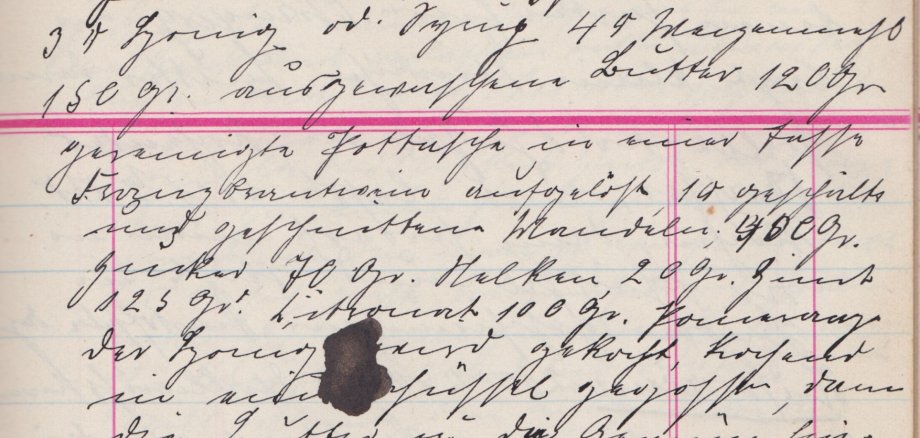 3 ℔ Honig od. Syrup 4 ℔ Weizenmehl
150 Gr. ausgewaschene Butter 120 Gr
gereinigte Pottasche in einer Tasse
Franzbrantwein aufgelöst, 1 ℔ geschälte
und geschnittene Mandeln, 400 Gr.
Zucker 70 Gr. Nelken, 20 Gr. Zimt
125 Gr. Citronat 100 Gr. Pomeranz
der Honig wird gekocht, kochend
in eine Schüssel gegossen, dann
die Butter u. die Gewürze